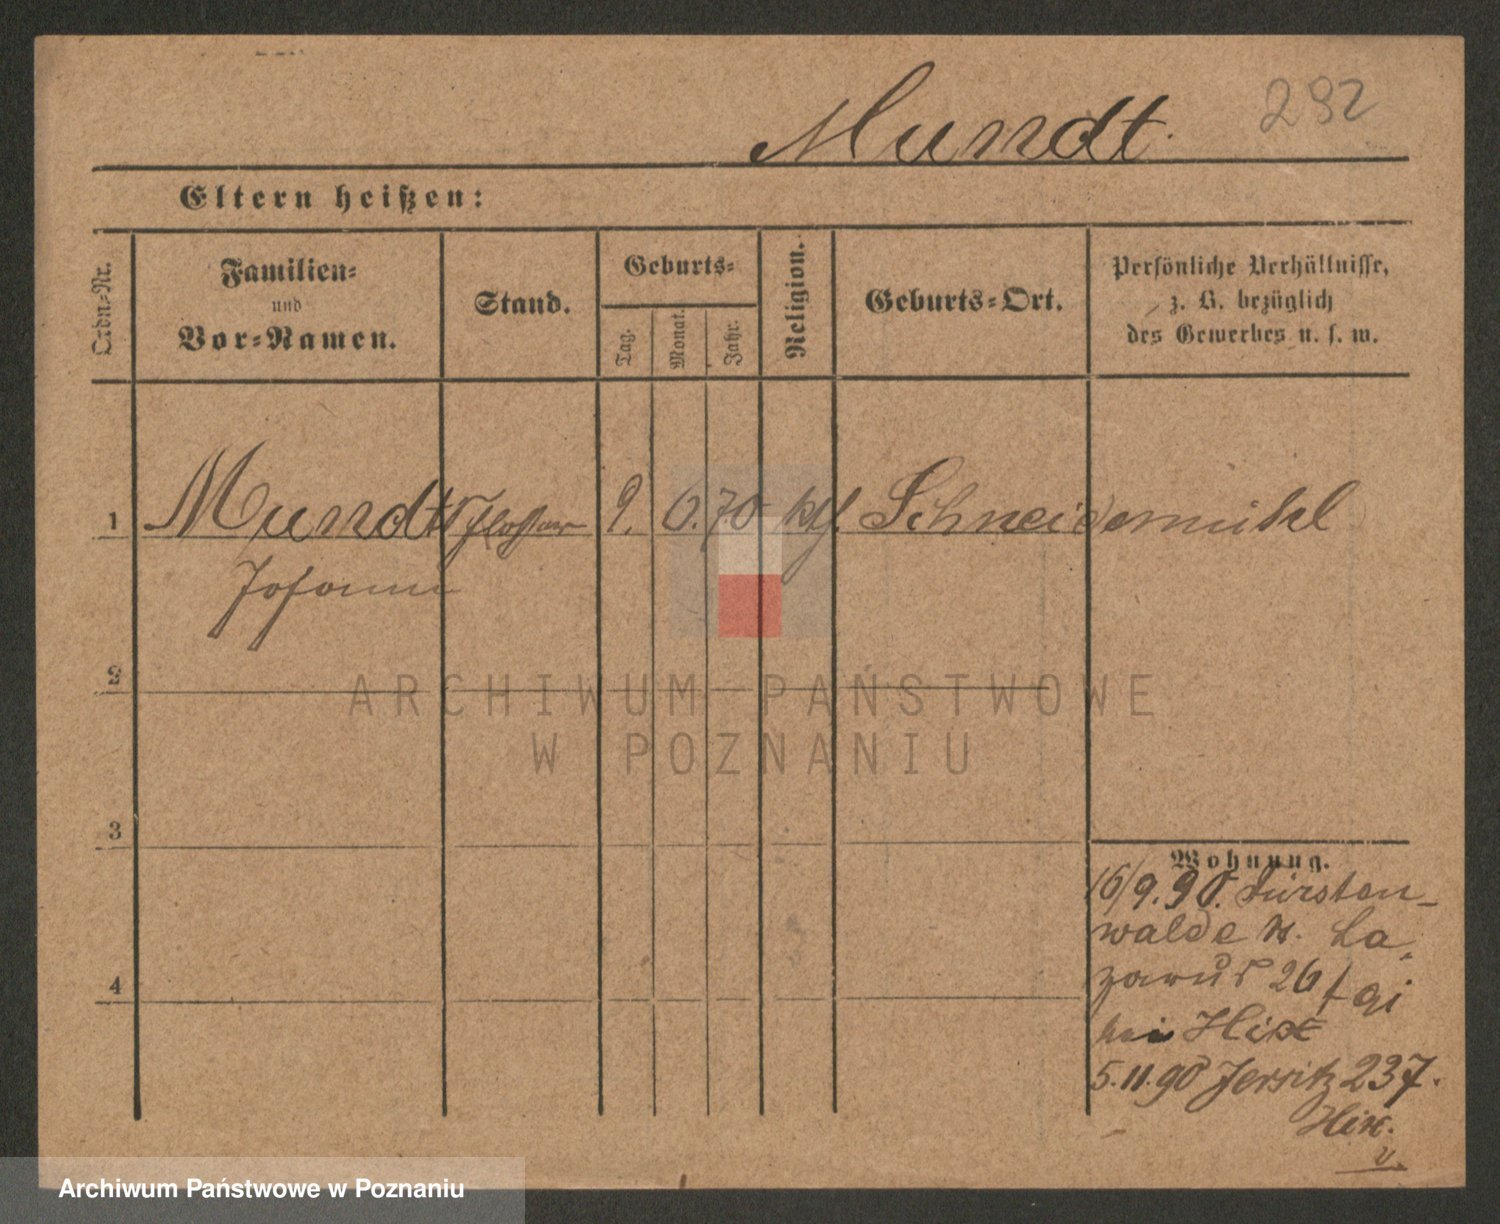 Mundt.
292
Eltern heißen:
Ordn-Nr.
Familien-
und
Vor-Namen.
Stand.
Geburts-
Tag.
Monat.
Jahr.
Religion.
Geburts-Ort.
Persönliche Verhältnisse,
z. B. bezüglich
des Gewerbes u. s. w.
1 Mundt 9. 6. 70 ktl. Schneidemühl
Johann
2
3
4
Wohnung.
16/9.90. Fürsten-
walde n. La-
zarus 26
bei Hixt
5.11.90 Jersitz 237.
Hix.
ARCHIWUM PAŃSTWOWE
W POZNANIU
Archiwum Państwowe w Poznaniu